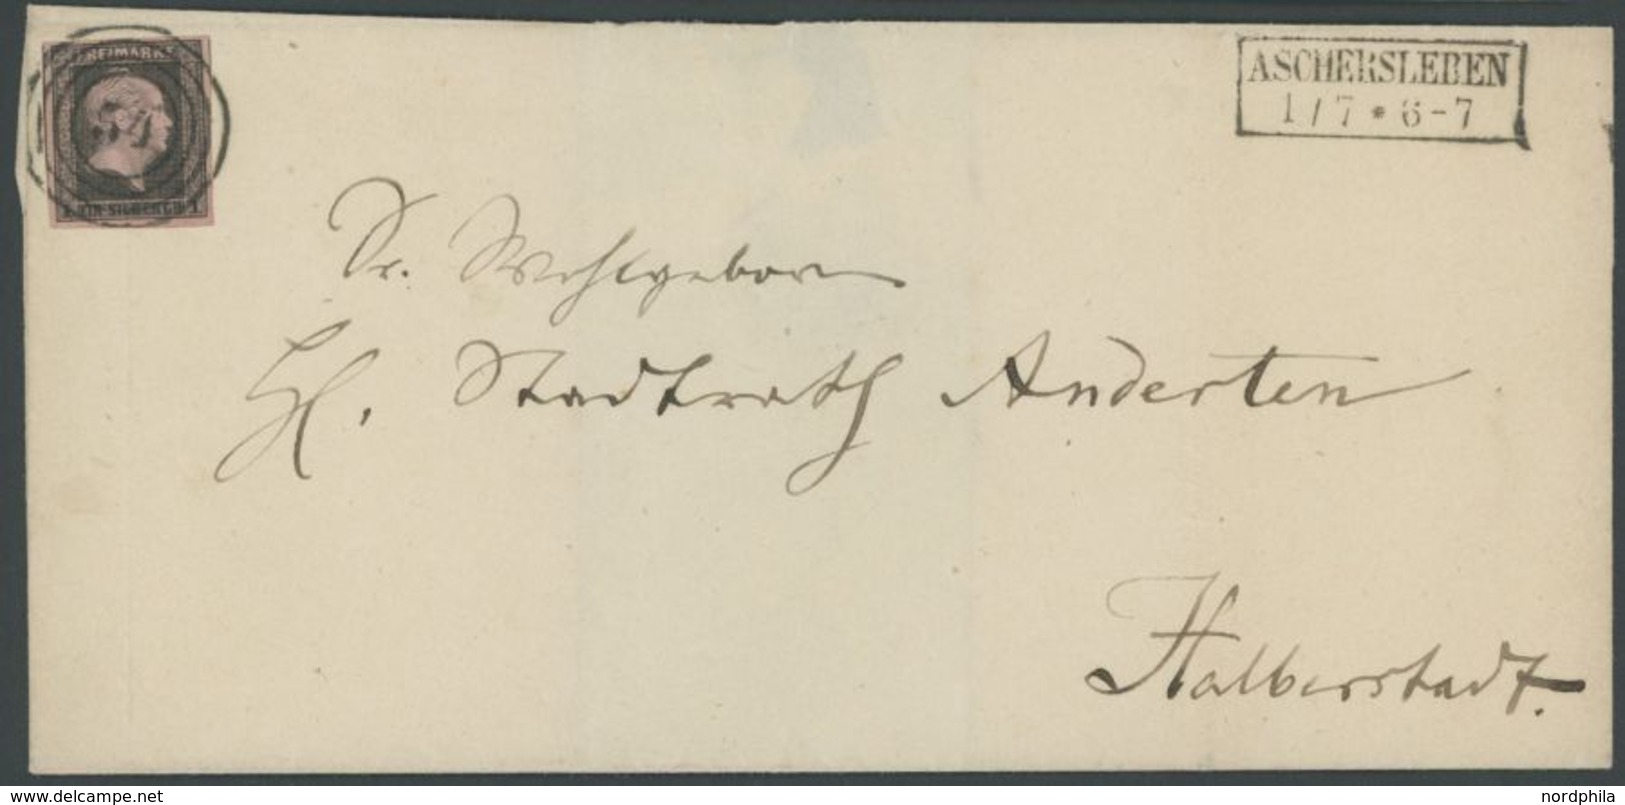 FREIMARKE
54
1. EIN SILBERGR. 1.
ASCHERSLEBEN
1 / 7 * 6 - 7
Sr. Wohlgeboren
H. Stadtrath Anderten
Halberstadt.
www.delcampe.net
nordphila